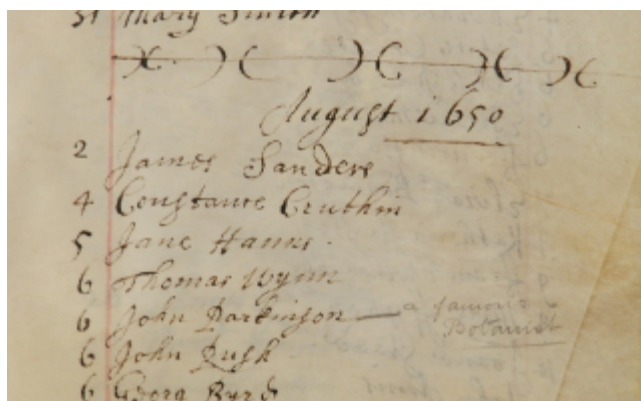 31 Mary Simion
August 1650
2 James Sanders
4 Constance Cruthin
5 Jane Hanns
6 Thomas Wynn
6 John Parkinson — a famous
Botanist
6 John Rush
6 Georg Byrd